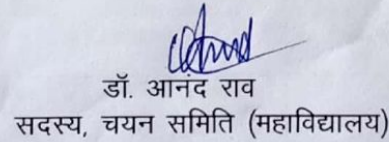 डॉ. आनंद राव
सदस्य, चयन समिति (महाविद्यालय)